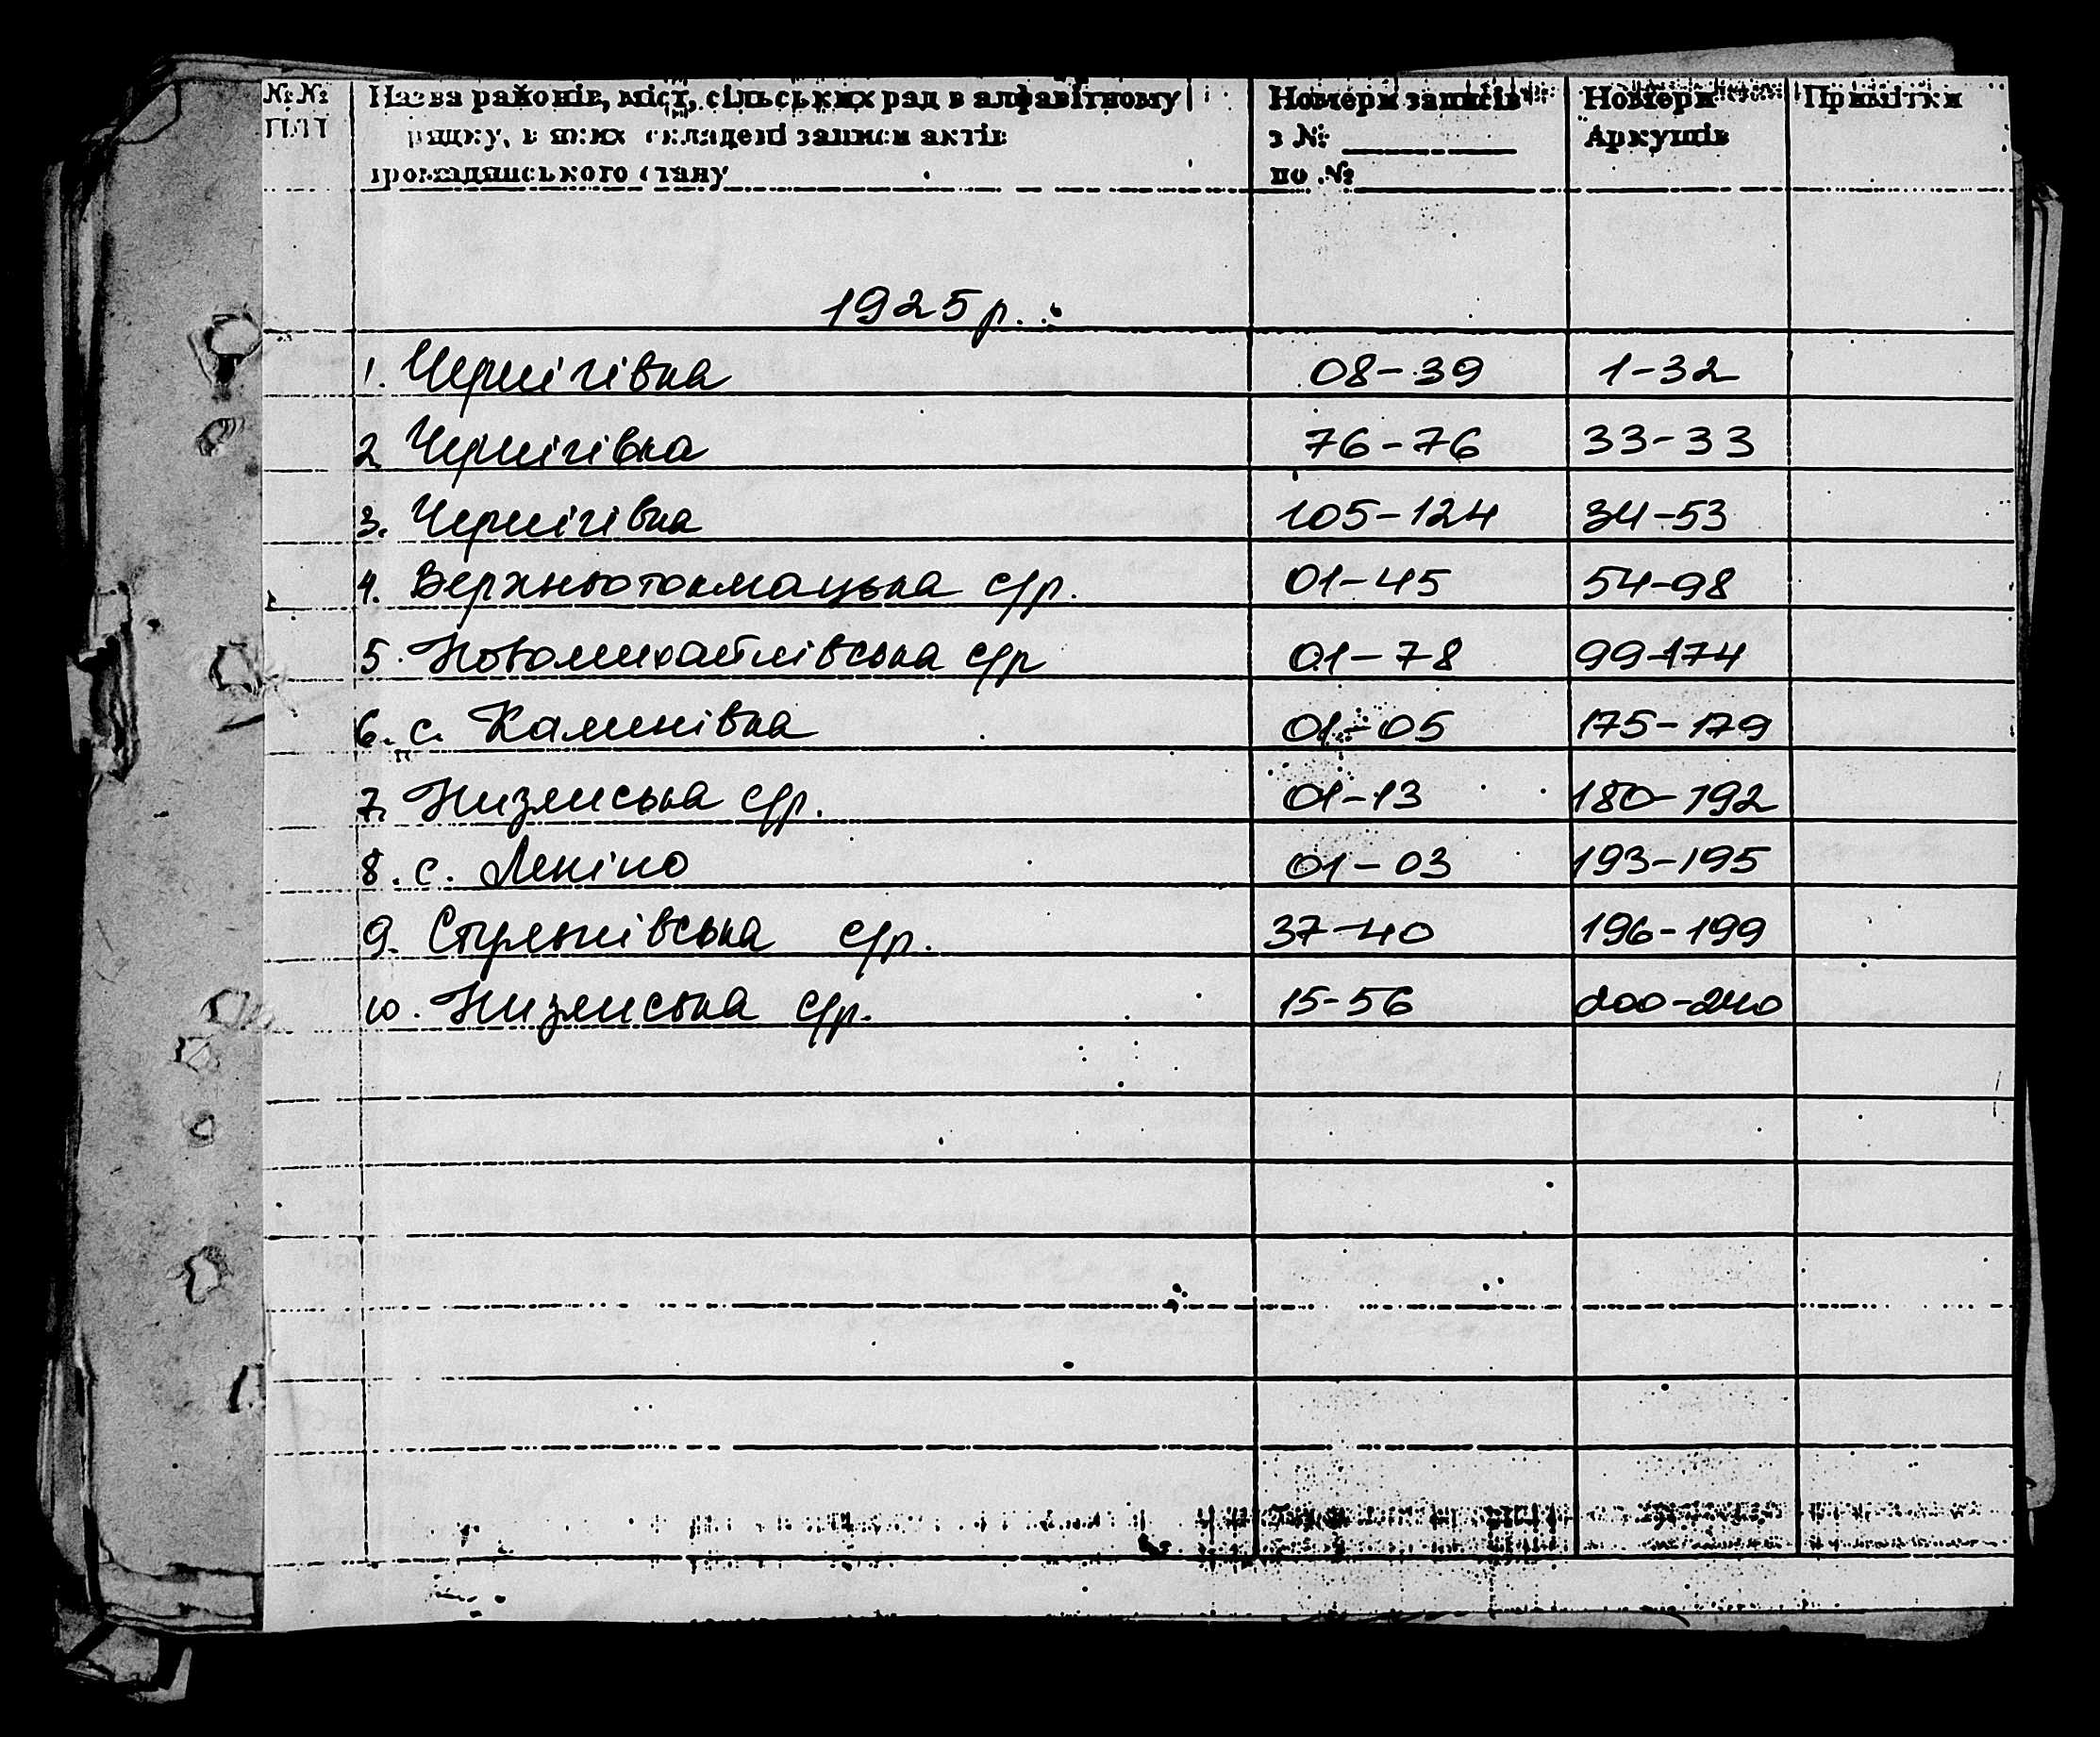 №№ Назва районів, міст, сільських рад в алфавітному Номери записів Номери Примітки
П/П рядку, в яких складені записи актів з № Аркушів
громадянського стану по №
1925 р.
1. Чернігівка 08-39 1-32
2 Чернігівка 76-76 33-33
3. Чернігівка 105-124 34-53
4. Верхньотокмацька с/р. 01-45 54-98
5. Новомихайлівська с/р 01-78 99-174
6. с. Калинівка 01-05 175-179
7. Низянська с/р. 01-13 180-192
8. с. Леніно 01-03 193-195
9. с/р. 37-40 196-199
10. Низянська с/р. 15-56 200-240